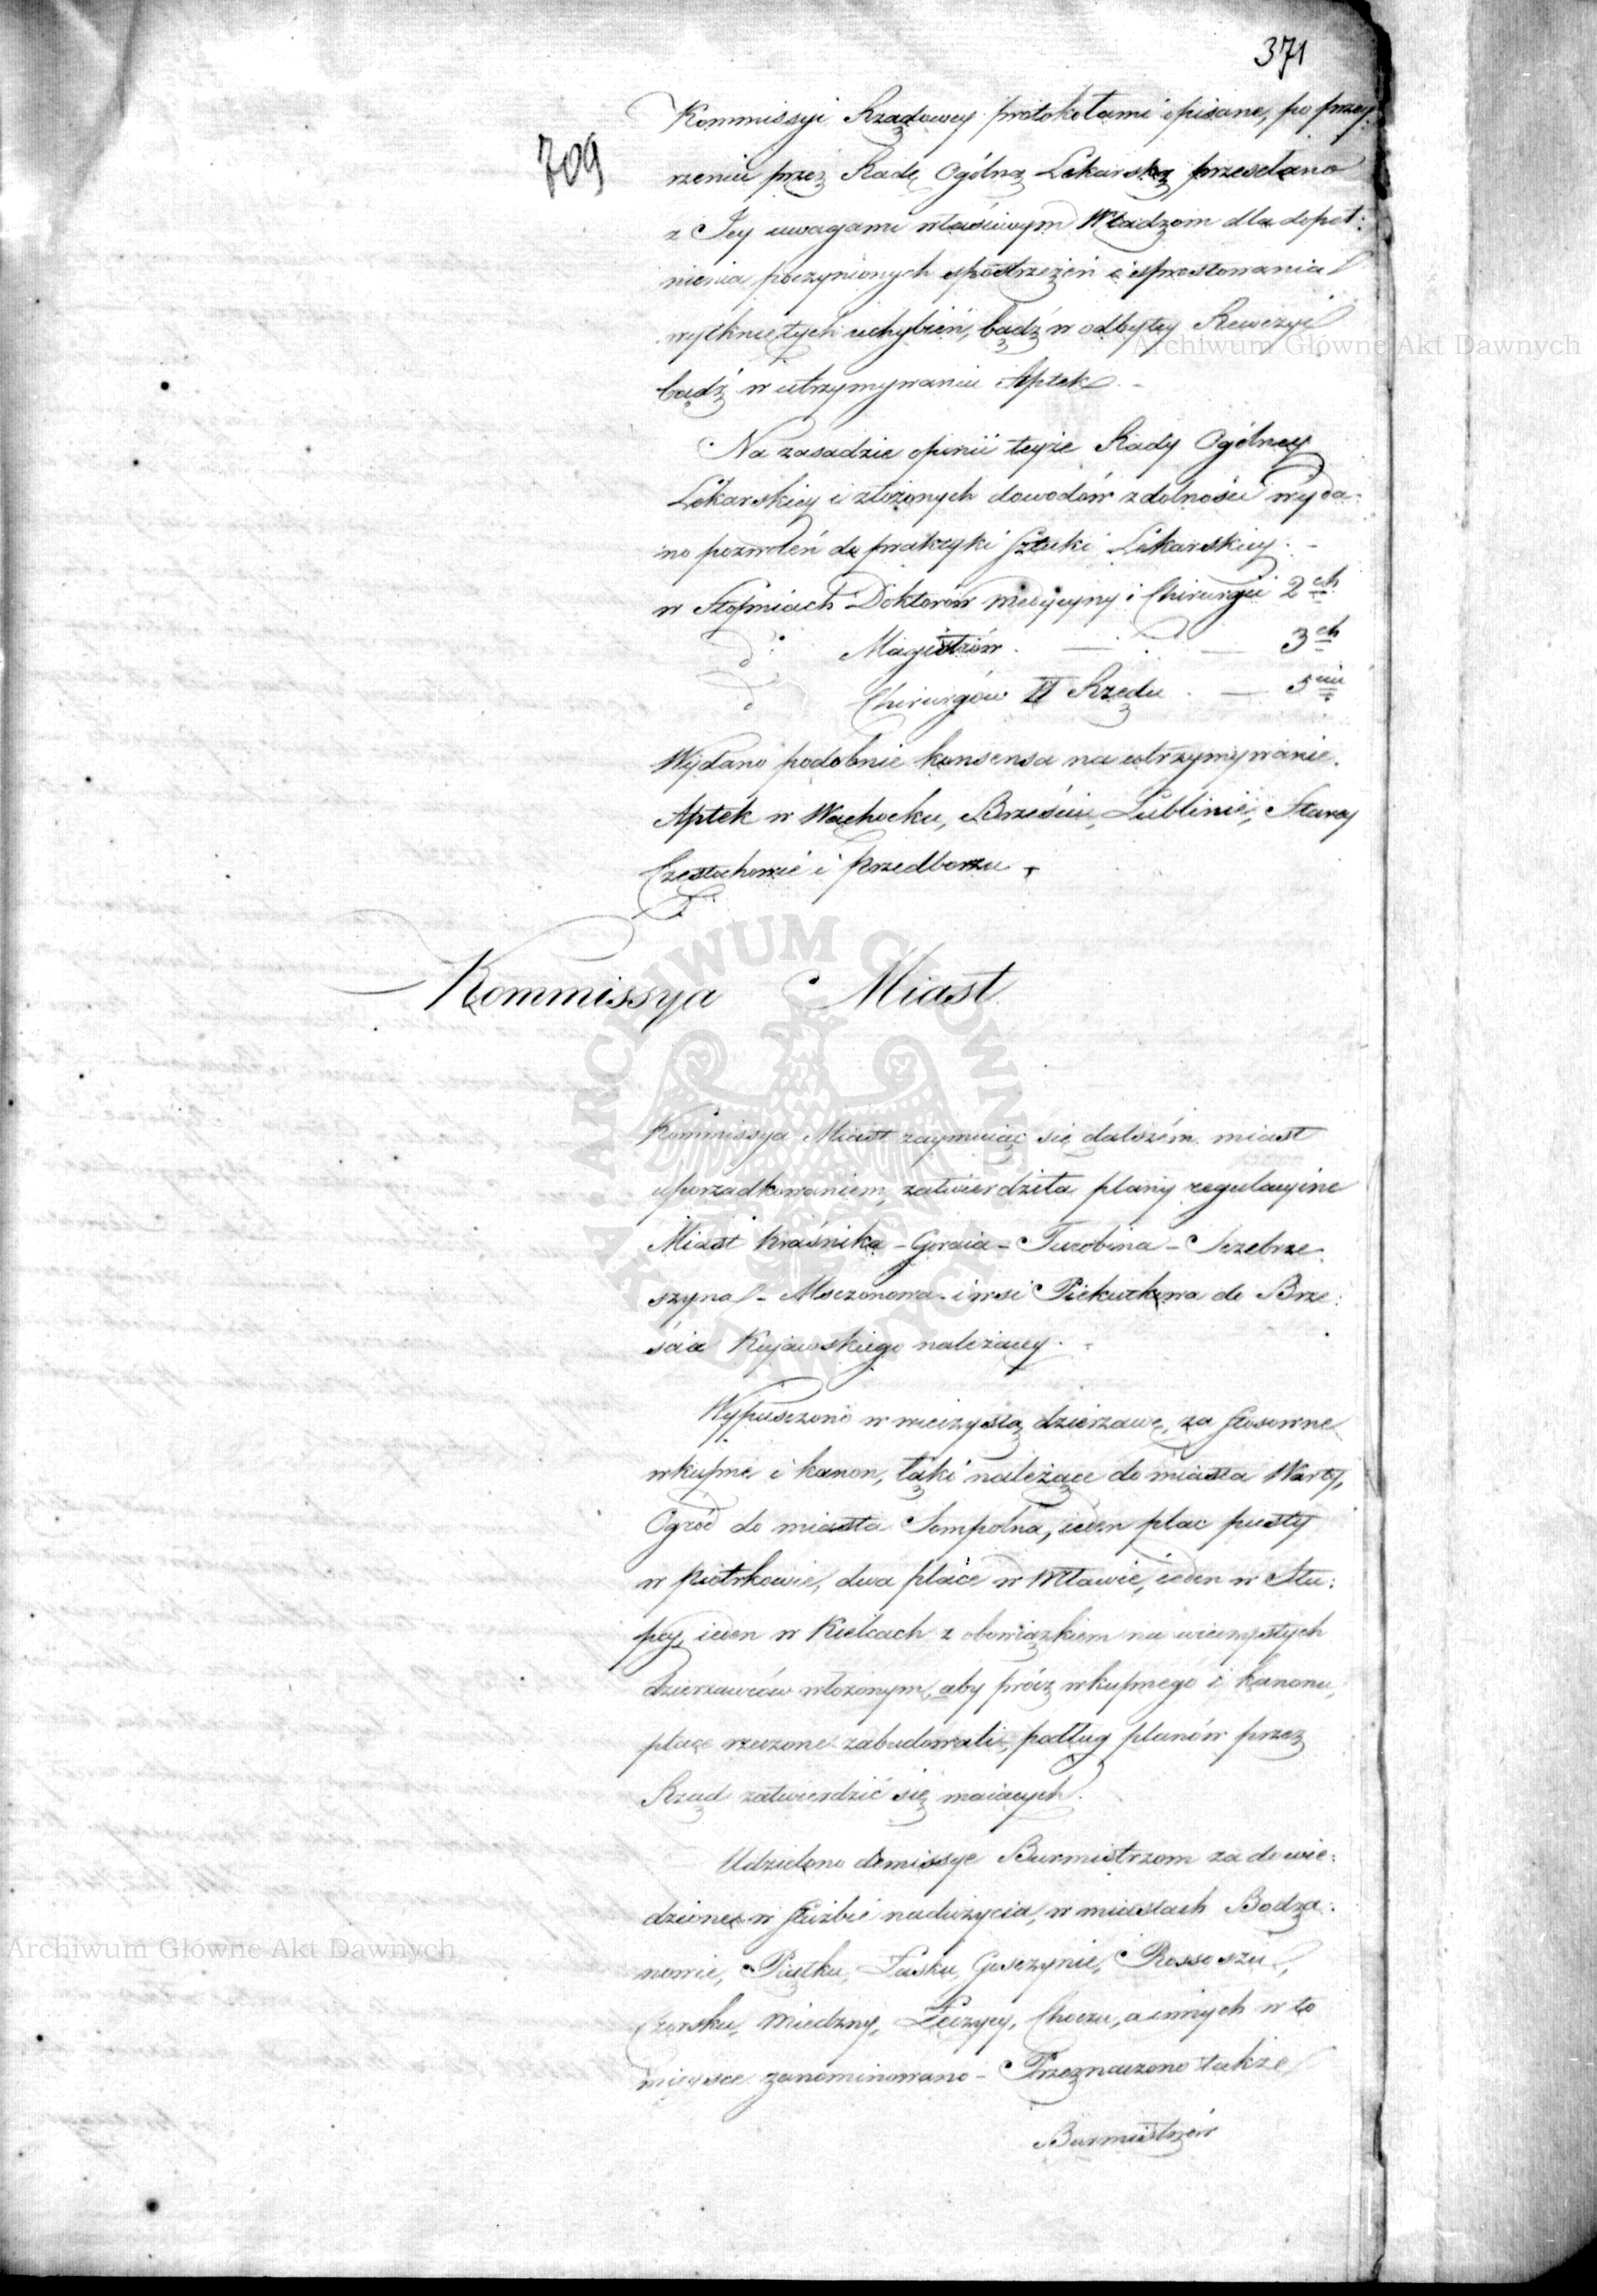 371
709
Kommissyi Rządowey protokołami opisane, po przey:
rzeniu przez Radę Ogólną Lekarską przesłano
z Jey uwagami właściwym Władzom dla dopeł:
nienia poczynionych spostrzeżeń i sprostowania
wytkniętych uchybień, bądź w odbytey Rewizyi
bądź w utrzymywaniu Aptek. -
Na zasadzie opinii teyże Rady Ogólney
Lekarskiey i złożonych dowodów zdolności wyda:
no pozwoleń do praktyki sztuki Lekarskiey. -
w Stopniach Doktorów Medycyny i Chirurgii 2ch
do Magistrów . — . — 3ch
do Chirurgów II Rzędu . — 5ciu
Wydano podobnie konsensa na utrzymywanie
Aptek w Wąchocku, Brześciu, Lublinie, Starey
Częstochowie i Przedborzu.
Kommissya Miast
Kommissya Miast zaymuiąc się dalszém miast
uporządkowaniem, zatwierdziła plany regulacyine
Miast Kraśnika - Goraia - Turobina - Szczebrze
szyna - Mszczonowa - i wsi Piekutkowa do Brze:
ścia Kujawskiego należącey. -
Wypuszczono w wieczystą dzierżawę, za stosowne
wkupne i kanon, łąki należące do miasta Warty,
Ogród do miasta Sompolna, ieden plac pusty
w Piotrkowie, dwa place w Mławie, ieden w Słu:
pcy, ieden w Kielcach z obowiązkiem na wieczystych
dzierżawców włożonym, aby prócz wkupnego i kanonu,
place rzeczone zabudowali, podług planów przez
Rząd zatwierdzić się maiących.
Udzielono demissye Burmistrzom za dowie:
dzione w służbie nadużycia, w miastach Bodza:
nowie, Piątku, Łasku, Gosczynie, Rossoszu,
Czersku, Miedzny, Łęczycy, Choczu, a innych w to
mieysce zanominowano - Przeznaczono także
Burmistrzów
Archiwum Główne Akt Dawnych
Archiwum Główne Akt Dawnych
ARCHIWUM GŁÓWNE AKT DAWNYCH